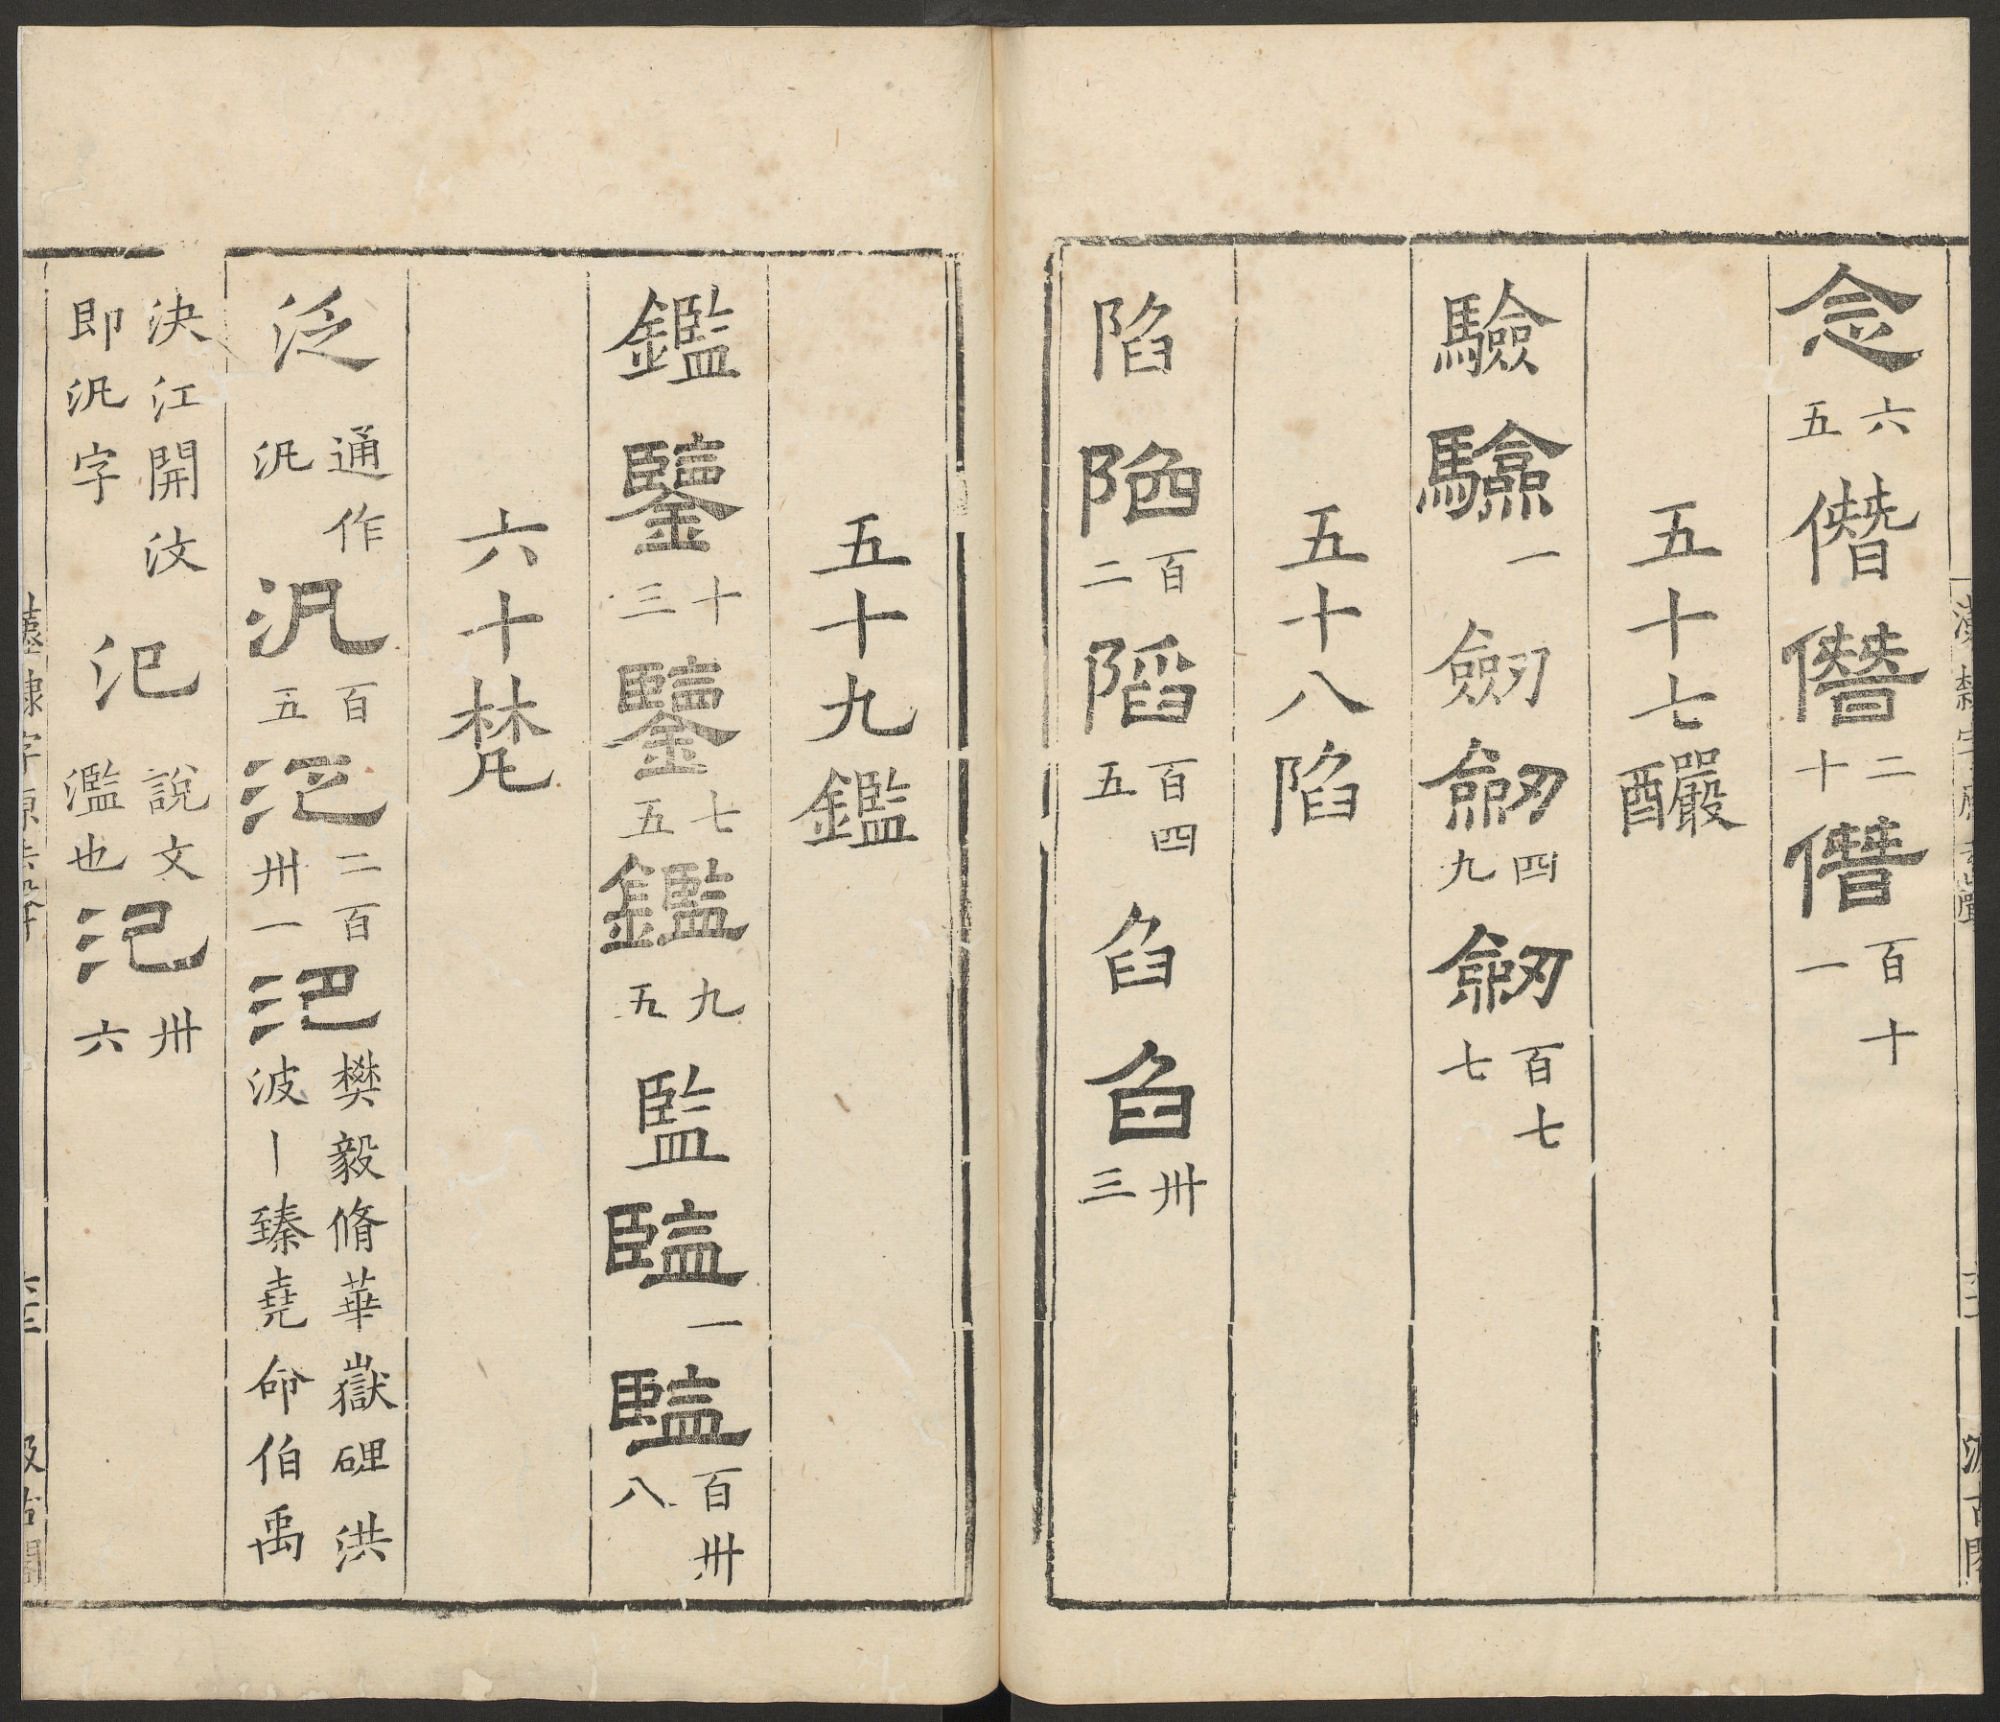 念六五僭僭二十僭百十一
五十七釅
驗驗一劒劒四九劒百七七
五十八陷
陷陷百二陷百四五臽臽卅三
五十九鑑
鑑鑒十三鑒七五鑑九五監監一監百卅八
六十梵
泛通作汎汎百五泛二百卅一氾樊毅脩華嶽碑洪波丨臻堯命伯禹
決江開汶即汎字氾說文濫也氾卅六
漢隸字源去聲
汲古閣